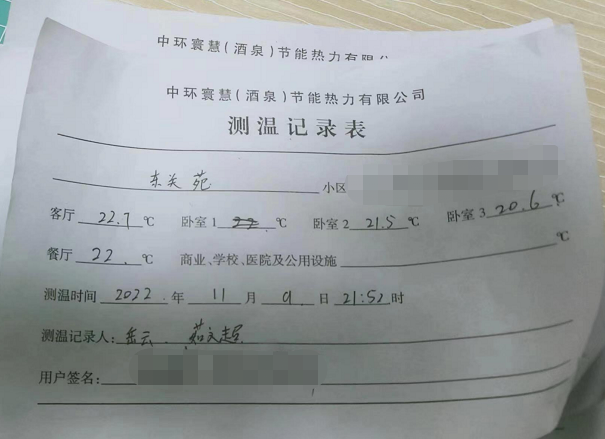 中环寰慧(酒泉)节能热力有限公
中环寰慧(酒泉)节能热力有限公司
测温记录表
东关苑 小区
客厅 22.7 ℃ 卧室1 22 ℃ 卧室2 21.5 ℃ 卧室3 20.6 ℃
餐厅 22. ℃ 商业、学校、医院及公用设施 ℃
测温时间 2022 年 11 月 9 日 21:52 时
测温记录人: 云 茹文
用户签名: